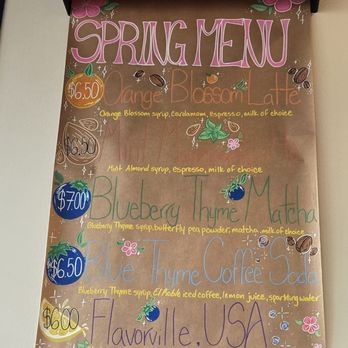 SPRING MENU
$6.50 Orange Blossom Latte
Orange Blossom syrup, cardamom, espresso, milk of choice
$6.50
Mint Almond syrup, espresso, milk of choice
$7.00 Blueberry Thyme Matcha
Blueberry Thyme syrup, butterfly pea powder, matcha, milk of choice
$6.50 Blue Thyme Coffee Soda
Blueberry Thyme syrup, iced coffee, lemon juice, sparkling water
$6.00 Flavorville, USA